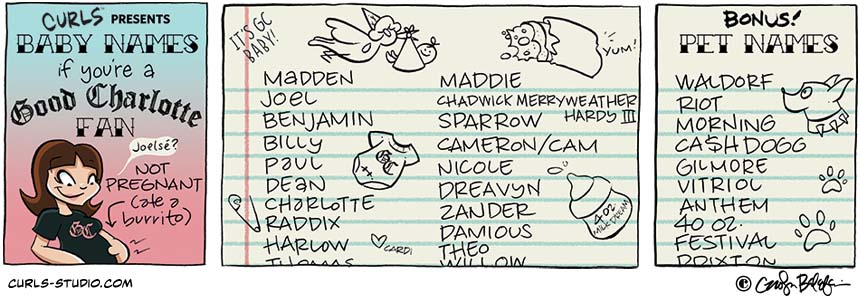 CURLS™ PRESENTS
BABY NAMES
if you're a
Good Charlotte
FAN
Joelsé?
NOT
PREGNANT
(ate a
burrito)
GC
IT'S GC
BABY!
YUM!
MADDEN
JOEL
BENJAMIN
BILLY
PAUL
DEAN
CHARLOTTE
RADDIX
HARLOW
THOMAS
CARDI
MADDIE
CHADWICK MERRYWEATHER
HARDY III
SPARROW
CAMERON/CAM
NICOLE
DREAVYN
ZANDER
DAMIOUS
THEO
WILLOW
GC
40 OZ
MILK DREAM
BONUS!
PET NAMES
WALDORF
RIOT
MORNING
CA$HDOGG
GILMORE
VITRIOL
ANTHEM
40 OZ.
FESTIVAL
BRIXTON
CURLS-STUDIO.COM
©